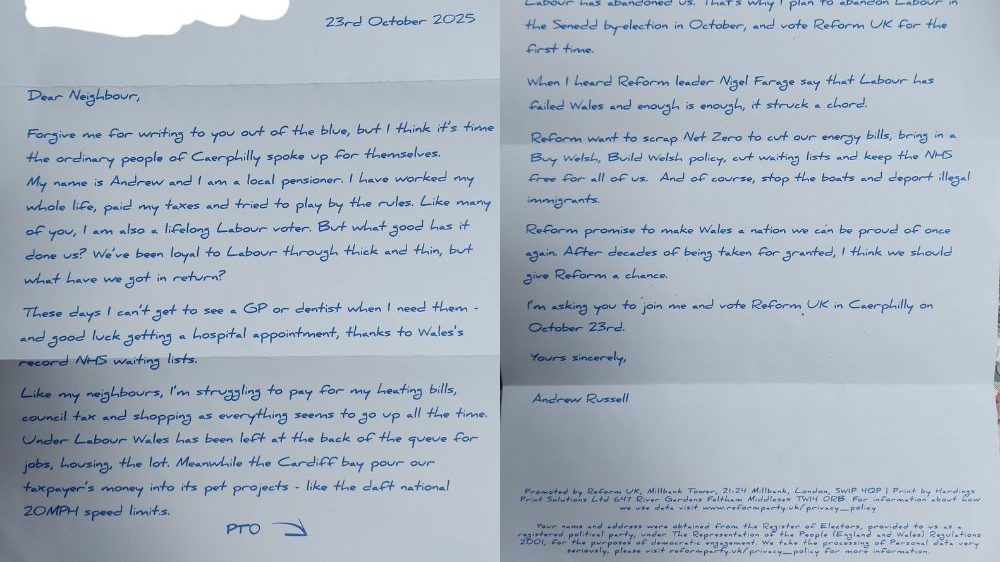 23rd October 2025
Dear Neighbour,
Forgive me for writing to you out of the blue, but I think it's time
the ordinary people of Caerphilly spoke up for themselves.
My name is Andrew and I am a local pensioner. I have worked my
whole life, paid my taxes and tried to play by the rules. Like many
of you, I am also a lifelong Labour voter. But what good has it
done us? We've been loyal to Labour through thick and thin, but
what have we got in return?
These days I can't get to see a GP or dentist when I need them -
and good luck getting a hospital appointment, thanks to Wales's
record NHS waiting lists.
Like my neighbours, I'm struggling to pay for my heating bills,
council tax and shopping as everything seems to go up all the time.
Under Labour Wales has been left at the back of the queue for
jobs, housing, the lot. Meanwhile the Cardiff bay pour our
taxpayer's money into its pet projects - like the daft national
20MPH speed limits.
PTO
Labour has abandoned us. That's why I plan to abandon Labour in
the Senedd by-election in October, and vote Reform UK for the
first time.
When I heard Reform leader Nigel Farage say that Labour has
failed Wales and enough is enough, it struck a chord.
Reform want to scrap Net Zero to cut our energy bills, bring in a
Buy Welsh, Build Welsh policy, cut waiting lists and keep the NHS
free for all of us. And of course, stop the boats and deport illegal
immigrants.
Reform promise to make Wales a nation we can be proud of once
again. After decades of being taken for granted, I think we should
give Reform a chance.
I'm asking you to join me and vote Reform UK in Caerphilly on
October 23rd.
Yours sincerely,
Andrew Russell
Promoted by Reform UK, Millbank Tower, 21-24 Millbank, London, SW1P 4QP | Print by Hardings
Print Solutions Ltd 6H7 River Gardens Feltham Middlesex TW14 0RB. For information about how
we use data visit www.reformparty.uk/privacy_policy
Your name and address were obtained from the Register of Electors, provided to us as a
registered political party, under The Representation of the People (England and Wales) Regulations
2001, for the purposes of democratic engagement. We take the processing of Personal data very
seriously, please visit reformparty.uk/privacy_policy for more information.